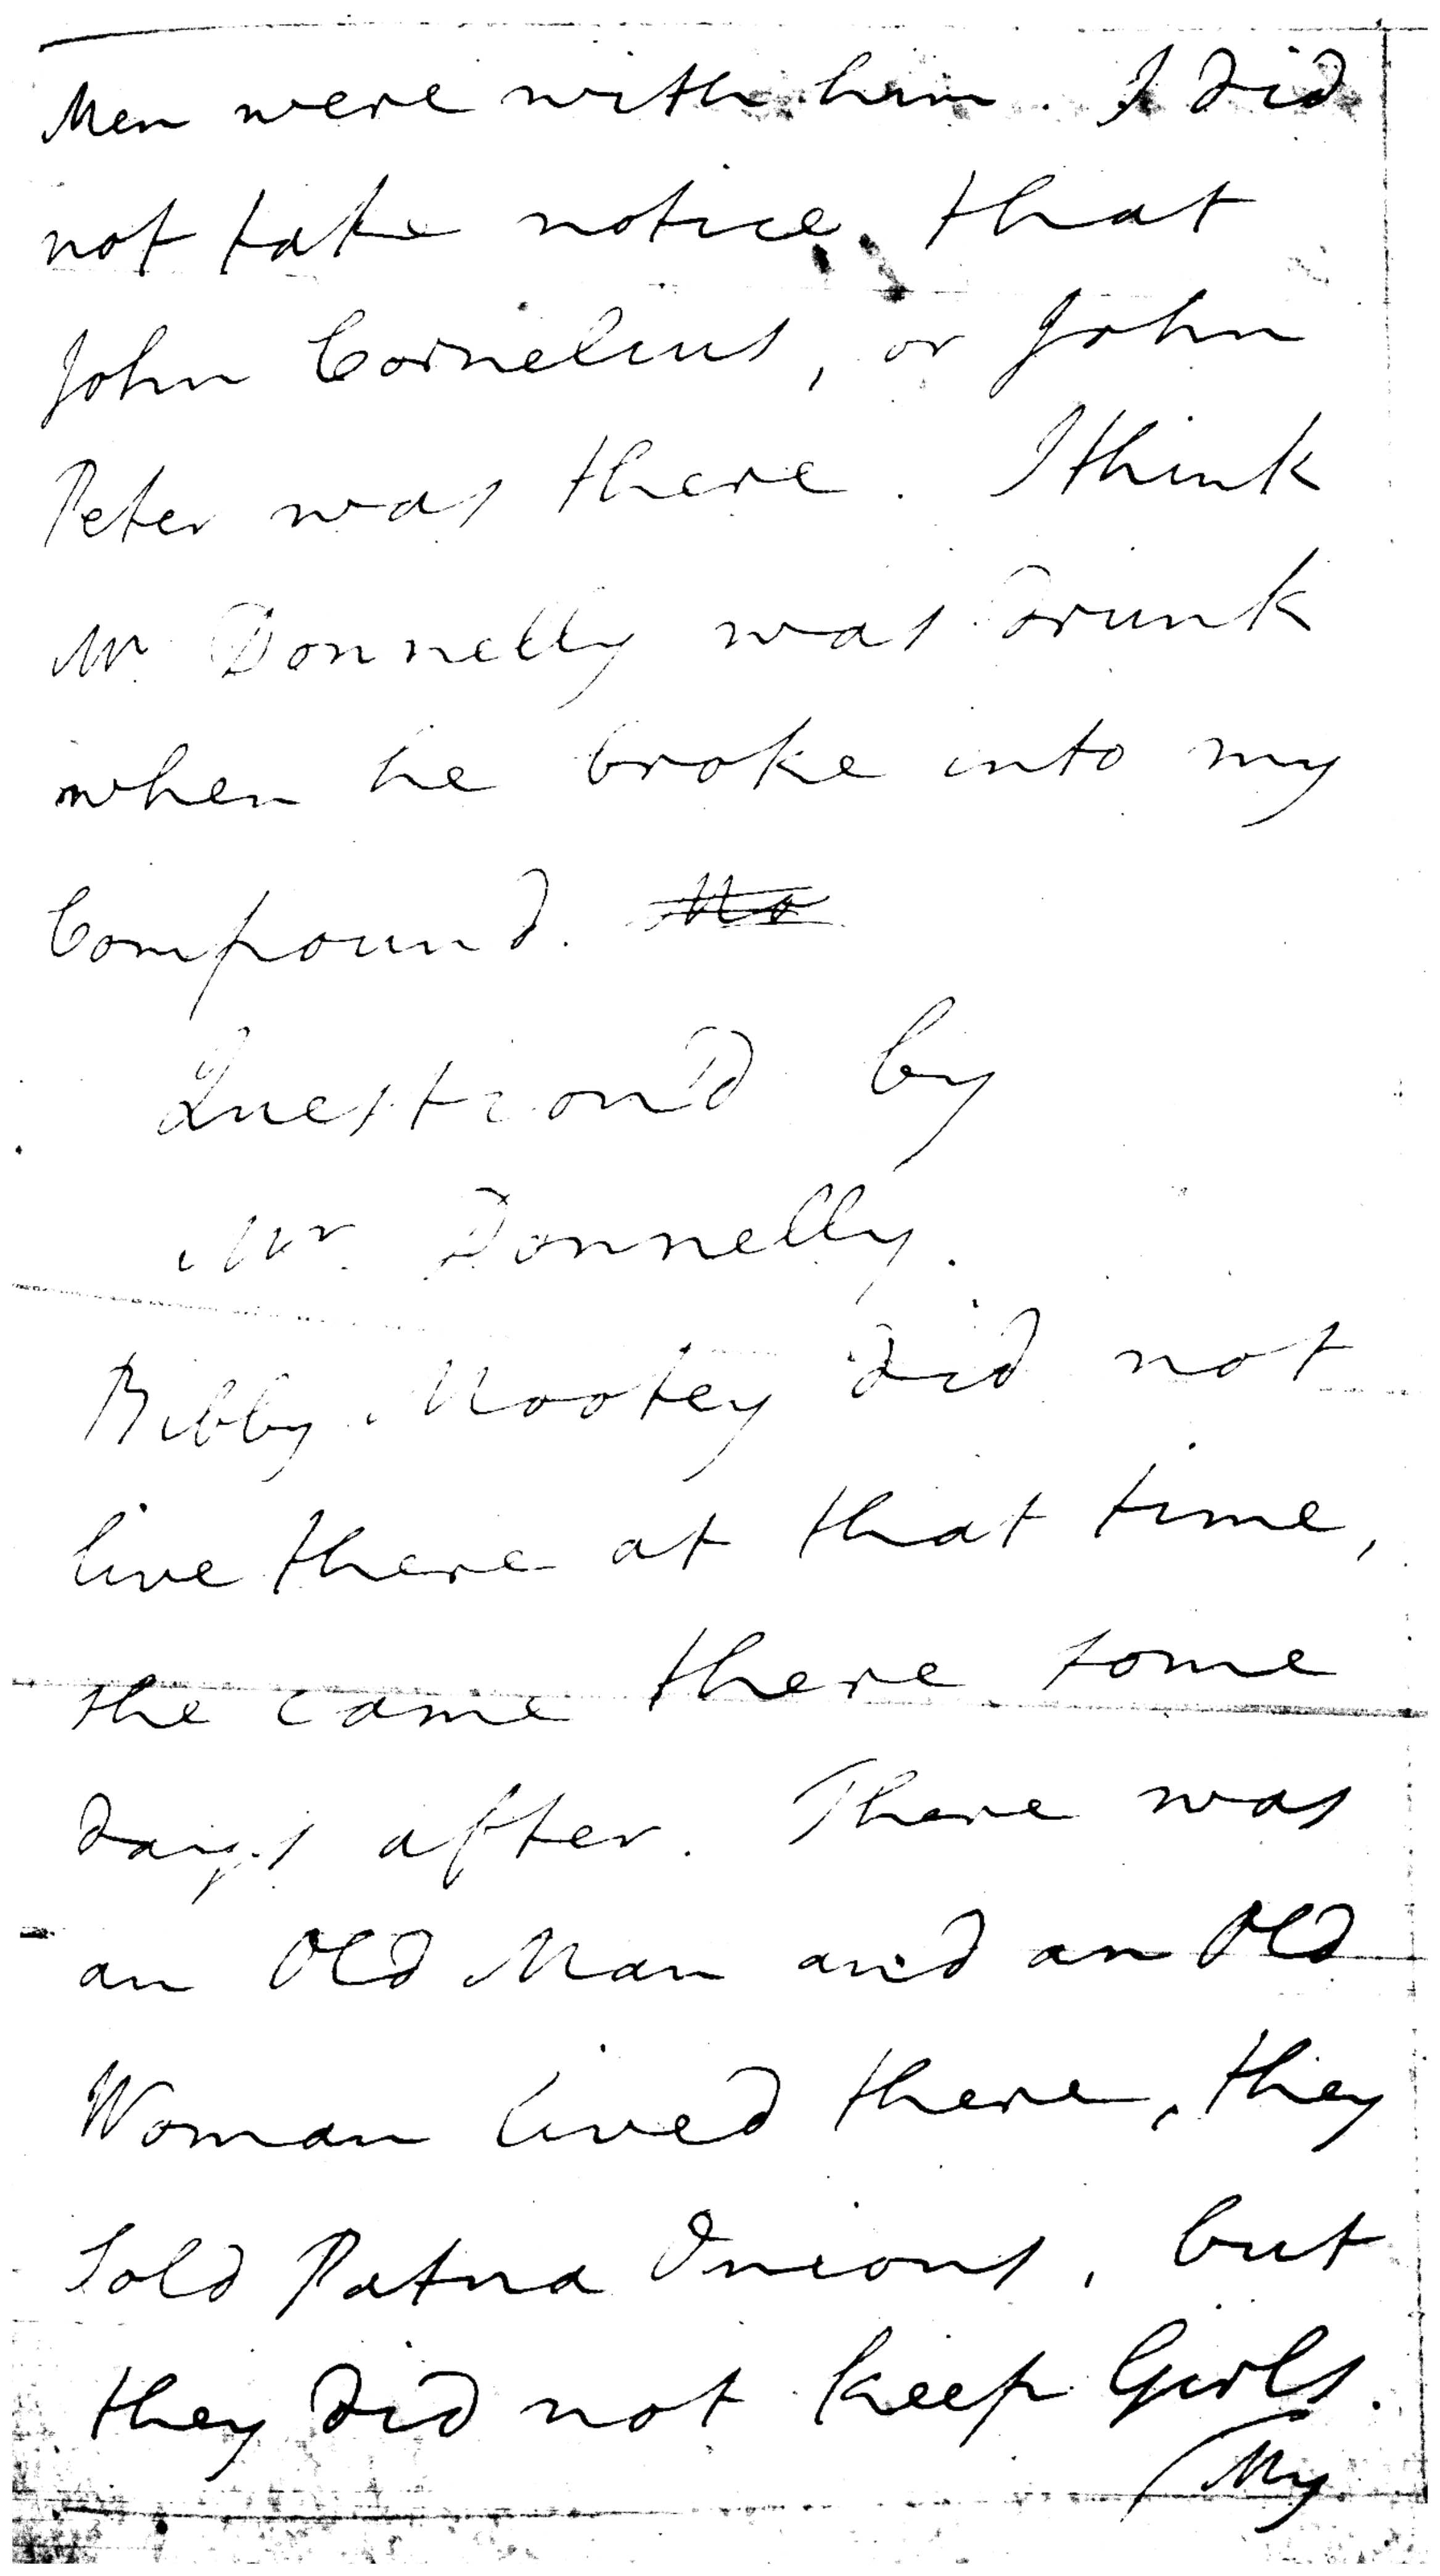 Men were with him. I did
not take notice that
John Cornelius, or John
Peter was there. I think
Mr Donnelly was drunk
when he broke into my
Compound.
Question'd by
Mr Donnelly.
Bibby Mootey did not
live there at that time,
she came there some
days after. There was
an Old Man and an Old
Woman lived there, they
Sold Patna Onions, but
they did not keep Girls.
My